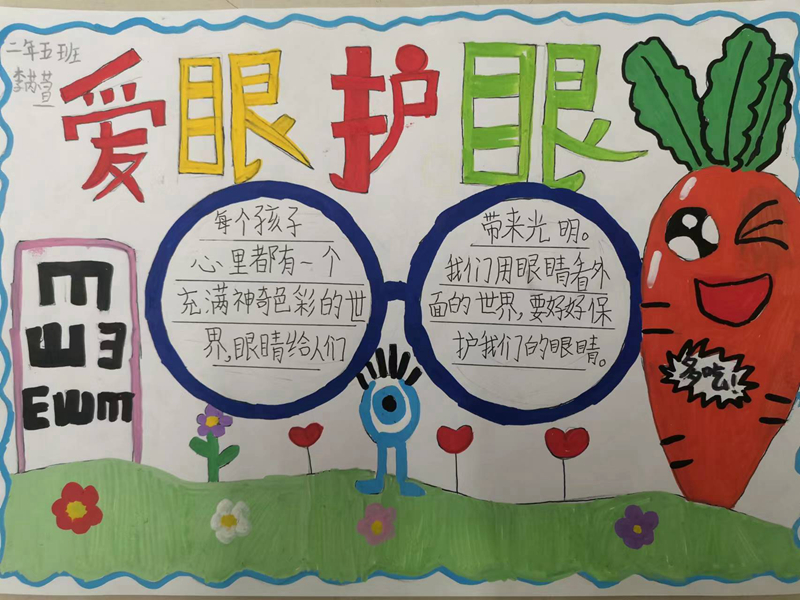 二年五班
李苪萱
爱眼护眼
每个孩子
心里都有一个
充满神奇色彩的世
界,眼睛给人们
带来光明。
我们用眼睛看外
面的世界,要好好保
护我们的眼睛。
E
E E
E E E
多吃!